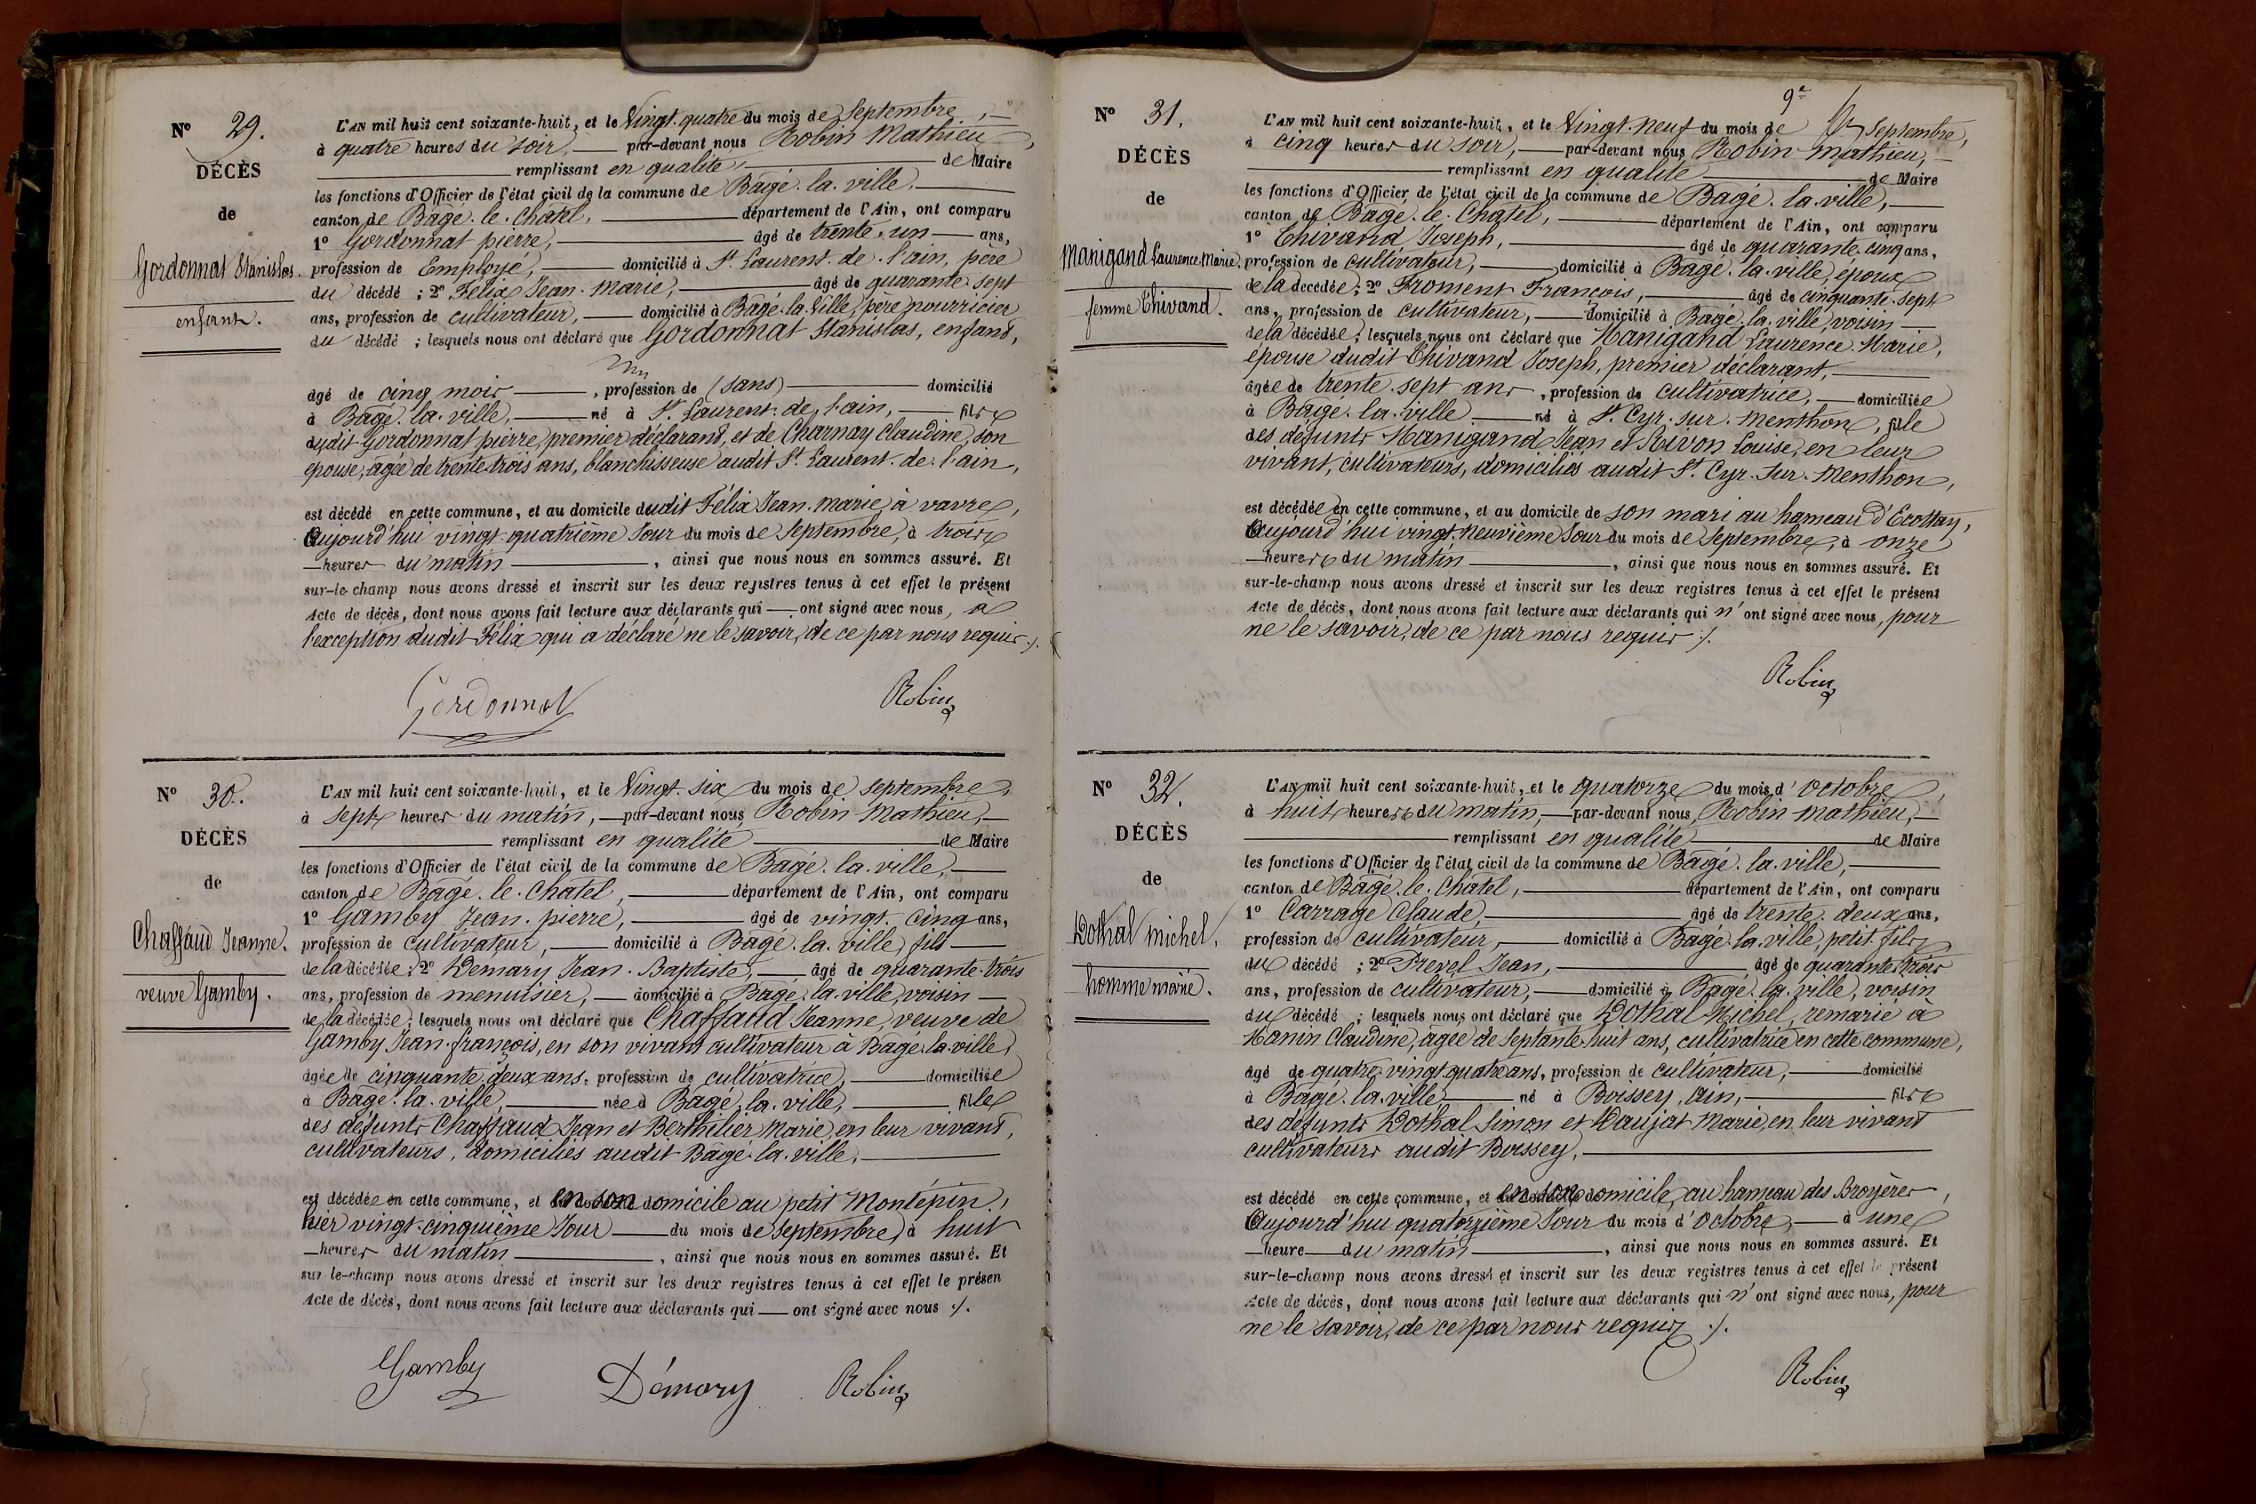 N° 29.
DÉCÈS
de
Gordonnat Stanislas.
enfant.
L'AN mil huit cent soixante-huit, et le Vingt-quatre du mois de Septembre,
à quatre heures du soir par-devant nous Robin Mathieu,
remplissant en qualité de Maire
les fonctions d'Officier de l'état civil de la commune de Bagé-la-ville,
canton de Bagé-le-Châtel, département de l'Ain, ont comparu
1° Gordonnat pierre, âgé de trente-un ans,
profession de Employé, domicilié à St Laurent-de-l'ain, père
du décédé ; 2° Félix Jean-Marie, âgé de quarante-sept
ans, profession de cultivateur, domicilié à Bagé-la-Ville, père nourricier
du décédé ; lesquels nous ont déclaré que Gordonnat Stanislas, enfant,
âgé de cinq mois, profession de (sans) domicilié
à Bagé-la-ville, né à St Laurent-de-l'ain, fils
dudit Gordonnat pierre, premier déclarant, et de Charnay Claudine, son
épouse, âgée de trente-trois ans, blanchisseuse audit St Laurent-de-l'ain,
est décédé en cette commune, et au domicile dudit Félix Jean-Marie à vavre,
Aujourd'hui vingt-quatrième Jour du mois de Septembre, à trois
heures du matin, ainsi que nous nous en sommes assuré. Et
sur-le-champ nous avons dressé et inscrit sur les deux registres tenus à cet effet le présent
Acte de décès, dont nous avons fait lecture aux déclarants qui ont signé avec nous, à
l'exception dudit Félix qui a déclaré ne le savoir, de ce par nous requis ./.
Gordonnat
Robin
N° 30.
DÉCÈS
de
Chaffaud Jeanne.
veuve Gamby.
L'AN mil huit cent soixante-huit, et le Vingt-six du mois de Septembre,
à sept heures du matin, par-devant nous Robin Mathieu,
remplissant en qualité de Maire
les fonctions d'Officier de l'état civil de la commune de Bagé-la-ville,
canton de Bagé-le-Châtel, département de l'Ain, ont comparu
1° Gamby Jean-pierre, âgé de vingt-cinq ans,
profession de cultivateur, domicilié à Bagé-la-ville, fils
de la décédée ; 2° Demary Jean-Baptiste, âgé de quarante-trois
ans, profession de menuisier, domicilié à Bagé-la-ville, voisin
de la décédée ; lesquels nous ont déclaré que Chaffaud Jeanne, veuve de
Gamby Jean-françois, en son vivant cultivateur à Bagé-la-ville,
âgée de cinquante-deux ans, profession de cultivatrice, domiciliée
à Bagé-la-ville, née à Bagé-la-ville, fille
des défunts Chaffaud Jean et Berthilier Marie, en leur vivant,
cultivateurs, domiciliés audit Bagé-la-ville,
est décédée en cette commune, et en son domicile au petit Montépin,
hier vingt-cinquième Jour du mois de Septembre, à huit
heures du matin, ainsi que nous nous en sommes assuré. Et
sur-le-champ nous avons dressé et inscrit sur les deux registres tenus à cet effet le présen
Acte de décès, dont nous avons fait lecture aux déclarants qui ont signé avec nous ./.
Gamby Démary Robin
9e
N° 31.
DÉCÈS
de
Manigand Laurence-Marie.
femme Chivand.
L'AN mil huit cent soixante-huit, et le Vingt-neuf du mois de Septembre,
à cinq heures du soir, par-devant nous Robin Mathieu,
remplissant en qualité de Maire
les fonctions d'Officier de l'état civil de la commune de Bagé-la-ville,
canton de Bagé-le-Châtel, département de l'Ain, ont comparu
1° Chivand Joseph, âgé de quarante-cinq ans,
profession de cultivateur, domicilié à Bagé-la-ville, époux
de la décédée ; 2° Froment François, âgé de cinquante-sept
ans, profession de cultivateur, domicilié à Bagé-la-ville, voisin
de la décédée ; lesquels nous ont déclaré que Manigand Laurence-Marie,
épouse dudit Chivand Joseph, premier déclarant,
âgée de trente-sept ans, profession de cultivatrice, domiciliée
à Bagé-la-ville né à St Cyr-sur-Menthon, fille
des défunts Manigand Jean et Rivon Louise, en leur
vivant, cultivateurs, domiciliés audit St Cyr-sur-Menthon,
est décédée en cette commune, et au domicile de son mari au hameau d'Ecottay,
Aujourd'hui vingt-neuvième Jour du mois de Septembre, à onze
heures du matin, ainsi que nous nous en sommes assuré. Et
sur-le-champ nous avons dressé et inscrit sur les deux registres tenus à cet effet le présent
Acte de décès, dont nous avons fait lecture aux déclarants qui n'ont signé avec nous, pour
ne le savoir, de ce par nous requis ./.
Robin
N° 32.
DÉCÈS
de
Dothal Michel.
homme marié.
L'AN mil huit cent soixante-huit, et le quatorze du mois d'Octobre,
à huit heures du matin, par-devant nous Robin Mathieu,
remplissant en qualité de Maire
les fonctions d'Officier de l'état civil de la commune de Bagé-la-ville,
canton de Bagé-le-Châtel, département de l'Ain, ont comparu
1° Carrage Claude, âgé de trente-deux ans,
profession de cultivateur, domicilié à Bagé-la-ville, petit-fils
du décédé ; 2° Frevel Jean, âgé de quarante-trois
ans, profession de cultivateur, domicilié à Bagé-la-ville, voisin
du décédé ; lesquels nous ont déclaré que Dothal Michel, remarié à
Manin Claudine, âgée de septante-huit ans, cultivatrice en cette commune,
âgé de quatre-vingt-quatre ans, profession de cultivateur, domicilié
à Bagé-la-ville né à Boissey, ain, fils
des défunts Dothal Simon et Daujat Marie, en leur vivant
cultivateurs audit Boissey,
est décédé en cette commune, et en son domicile, au hameau des Broyères,
Aujourd'hui quatorzième Jour du mois d'Octobre, à une
heure du matin, ainsi que nous nous en sommes assuré. Et
sur-le-champ nous avons dressé et inscrit sur les deux registres tenus à cet effet le présent
Acte de décès, dont nous avons fait lecture aux déclarants qui n'ont signé avec nous, pour
ne le savoir, de ce par nous requis ./.
Robin